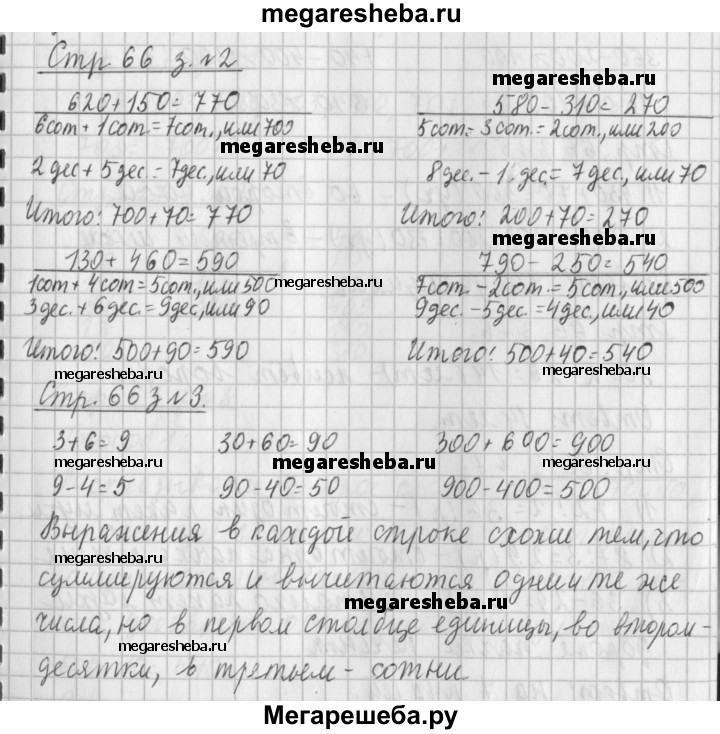 megaresheba.ru
Стр 66 з. №2
620+150=770
6сот+1сот=7сот., или 700
megaresheba.ru
2 дес+5 дес=7дес., или 70
Итого: 700+70=770
megaresheba.ru
580-310=270
5сот-3сот.=2сот., или 200
8дес.-1.дес.=7дес., или 70
Итого! 200+70=270
130+460=590
1сот+4сот=5сот., или 500
megaresheba.ru
3дес.+6дес.=9дес, или 90
Итого! 500+90=590
megaresheba.ru
790-250=540
megaresheba.ru
7сот.-2сот.=5сот., или 500
9дес.-5дес.=4дес., или 40
Итого! 500+40=540
megaresheba.ru
megaresheba.ru
Стр. 66 з №3.
3+6=9 30+60=90 300+600=900
megaresheba.ru megaresheba.ru
9-4=5 90-40=50 900-400=500
megaresheba.ru
Выражения в каждой строке схожи тем, что
megaresheba.ru
суммируются и вычитаются одни и те же
megaresheba.ru
числа, но в первом столбце единицы, во втором-
megaresheba.ru
десятки, в третьем - сотни
Мегарешеба.ру